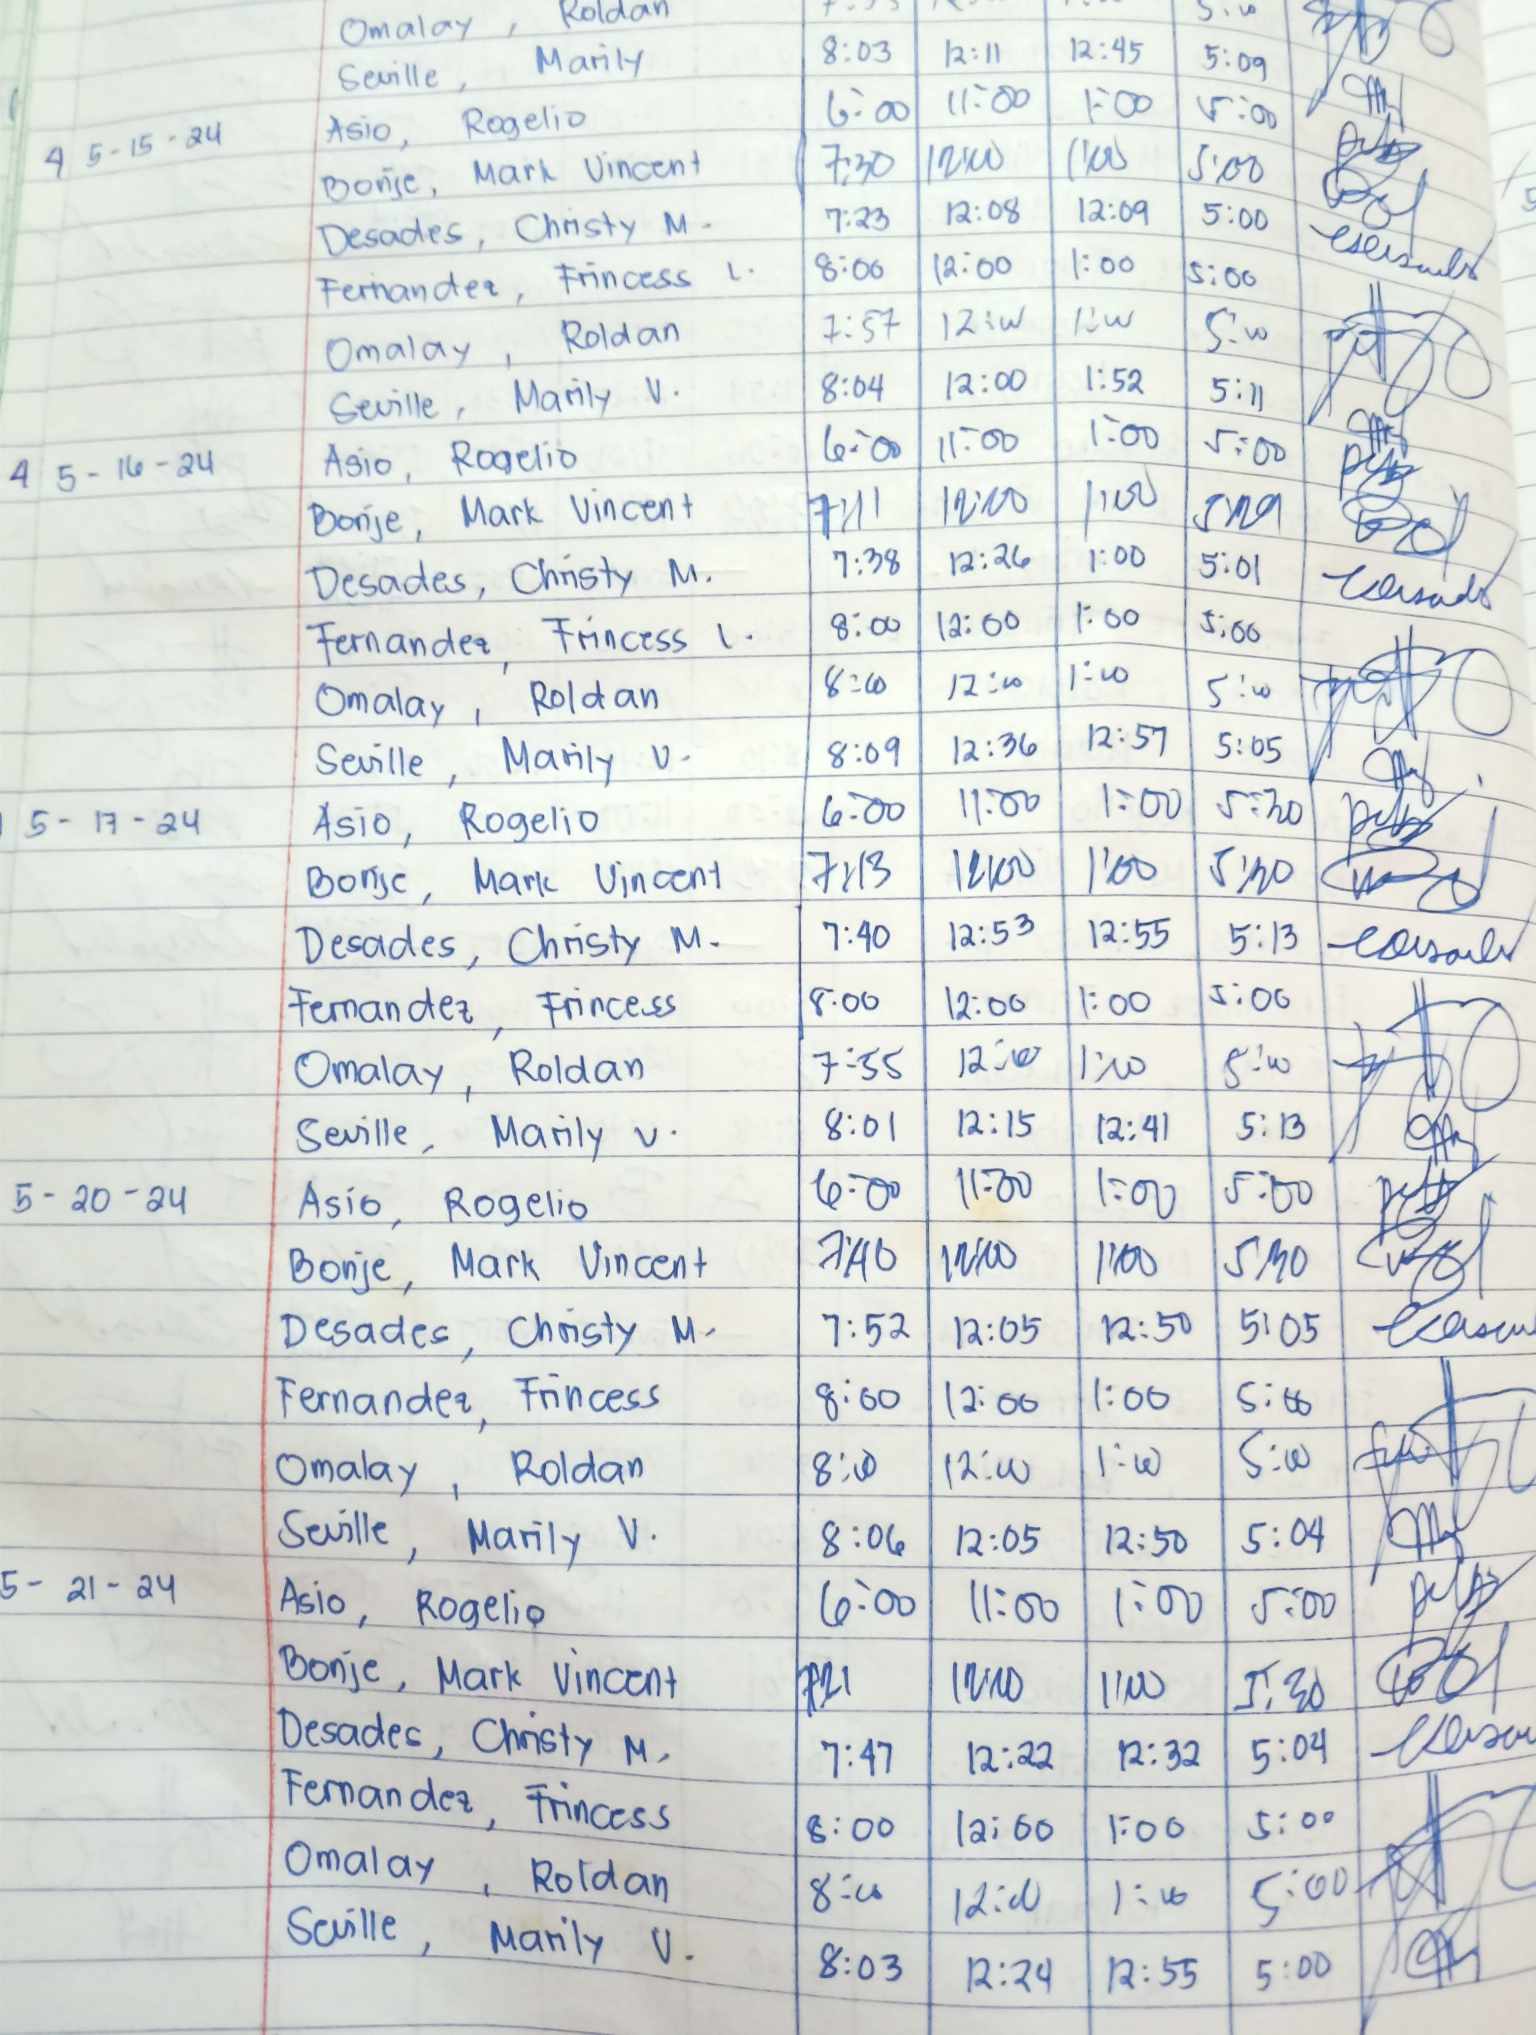 Omalay, Roldan
Seville, Marily 8:03 12:11 12:45 5:09
4 5-15-24 Asio, Rogelio 6:00 11:00 1:00 5:00
Bonje, Mark Vincent 7:30 12:00 1:00 5:00
Desades, Christy M. 7:23 12:08 12:09 5:00
Fernandez, Frincess L. 8:00 12:00 1:00 5:00
Omalay, Roldan 7:57 12:00 1:00 5:00
Seville, Marily V. 8:04 12:00 1:52 5:11
4 5-16-24 Asio, Rogelio 6:00 11:00 1:00 5:00
Bonje, Mark Vincent 7:11 12:00 1:00
Desades, Christy M. 7:38 12:26 1:00 5:01
Fernandez, Frincess L. 8:00 12:00 1:00 5:00
Omalay, Roldan 8:00 12:00 1:00 5:00
Seville, Marily V. 8:09 12:36 12:57 5:05
5-17-24 Asio, Rogelio 6:00 11:00 1:00 5:30
Bonje, Mark Vincent 7:13 12:00 1:00
Desades, Christy M. 7:40 12:53 12:55 5:13
Fernandez, Frincess 8:00 12:00 1:00 5:00
Omalay, Roldan 7:55 12:00 1:00 5:00
Seville, Marily V. 8:01 12:15 12:41 5:13
5-20-24 Asio, Rogelio 6:00 11:00 1:00 5:00
Bonje, Mark Vincent 7:40 12:00 1:00 5:30
Desades, Christy M. 7:52 12:05 12:50 5:05
Fernandez, Frincess 8:00 12:00 1:00 5:00
Omalay, Roldan 8:00 12:00 1:00 5:00
Seville, Marily V. 8:06 12:05 12:50 5:04
5-21-24 Asio, Rogelio 6:00 11:00 1:00 5:00
Bonje, Mark Vincent 7:21 12:00 1:00 5:30
Desades, Christy M. 7:47 12:22 12:32 5:04
Fernandez, Frincess 8:00 12:00 1:00 5:00
Omalay, Roldan 8:00 12:00 1:00 5:00
Seville, Marily V. 8:03 12:24 12:55 5:00